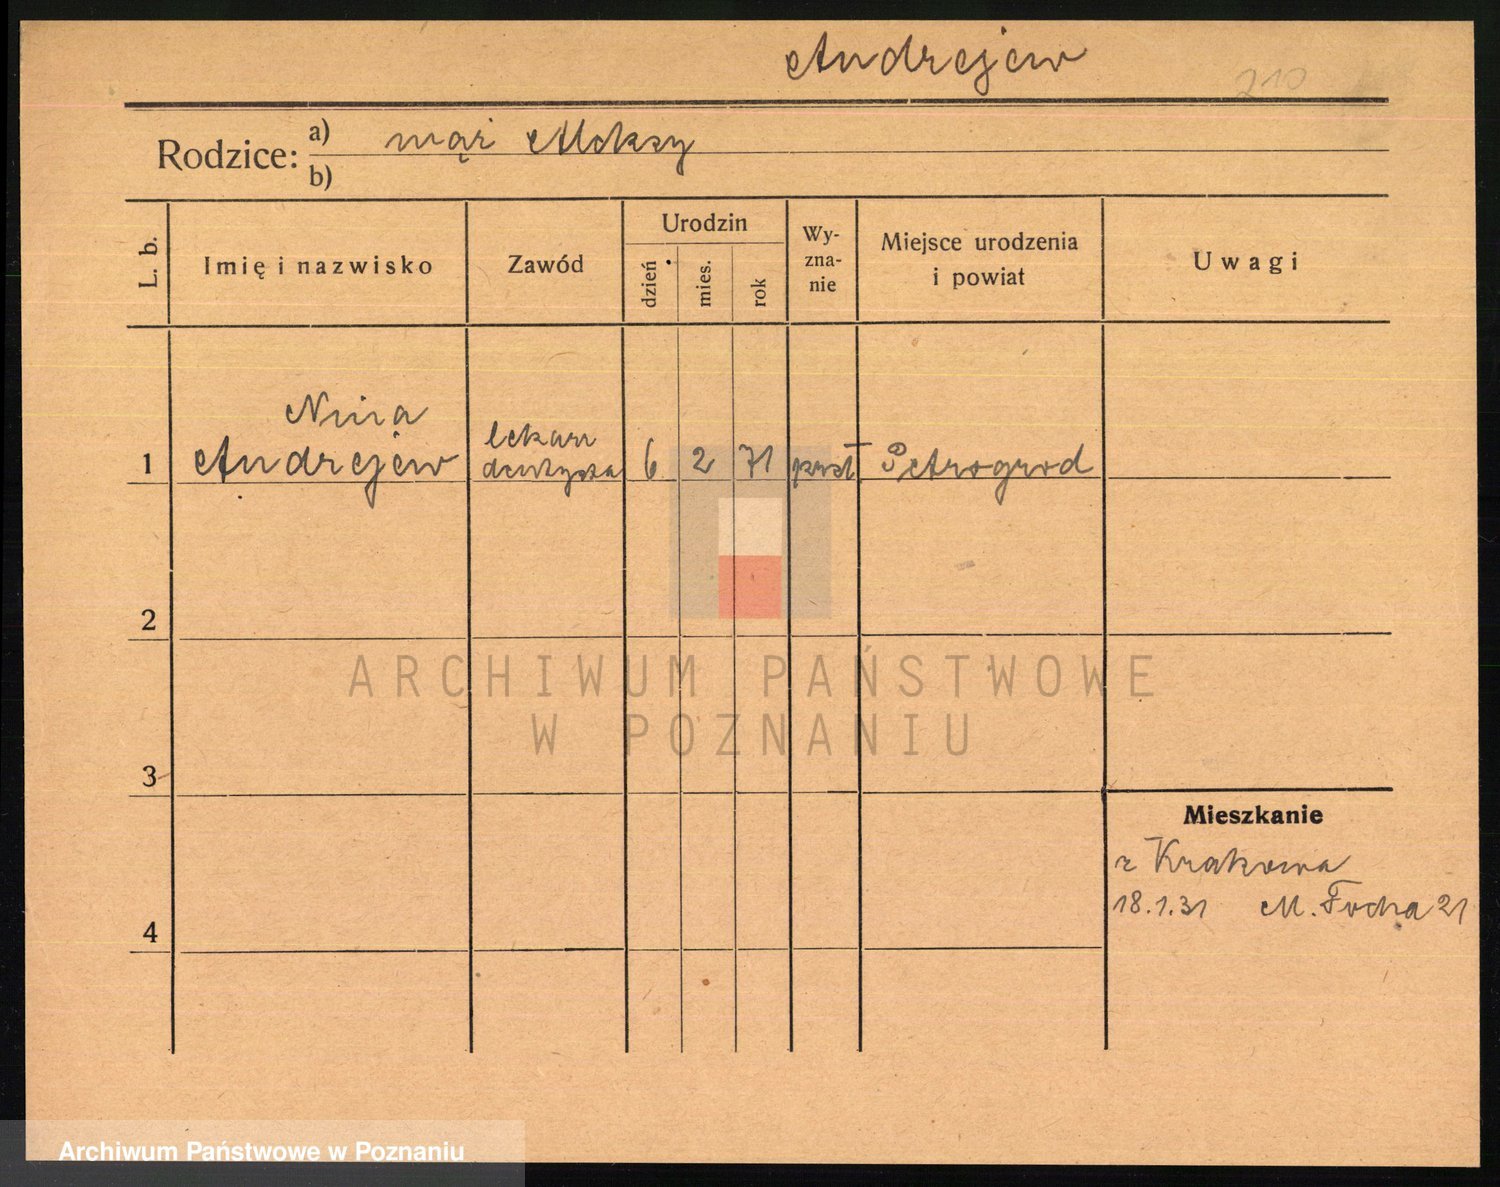 Andrejew
210
Rodzice: a) mąż Aleksy
b)
L. b. Imię i nazwisko Zawód Urodzin dzień mies. rok Wyznanie Miejsce urodzenia i powiat Uwagi
Nina lekarz
1 Andrejew dentystka 6 2 71 Petrograd
2
3
4
Mieszkanie
z Krakowa
18.1.31 M. Focha 21
ARCHIWUM PAŃSTWOWE
W POZNANIU
Archiwum Państwowe w Poznaniu